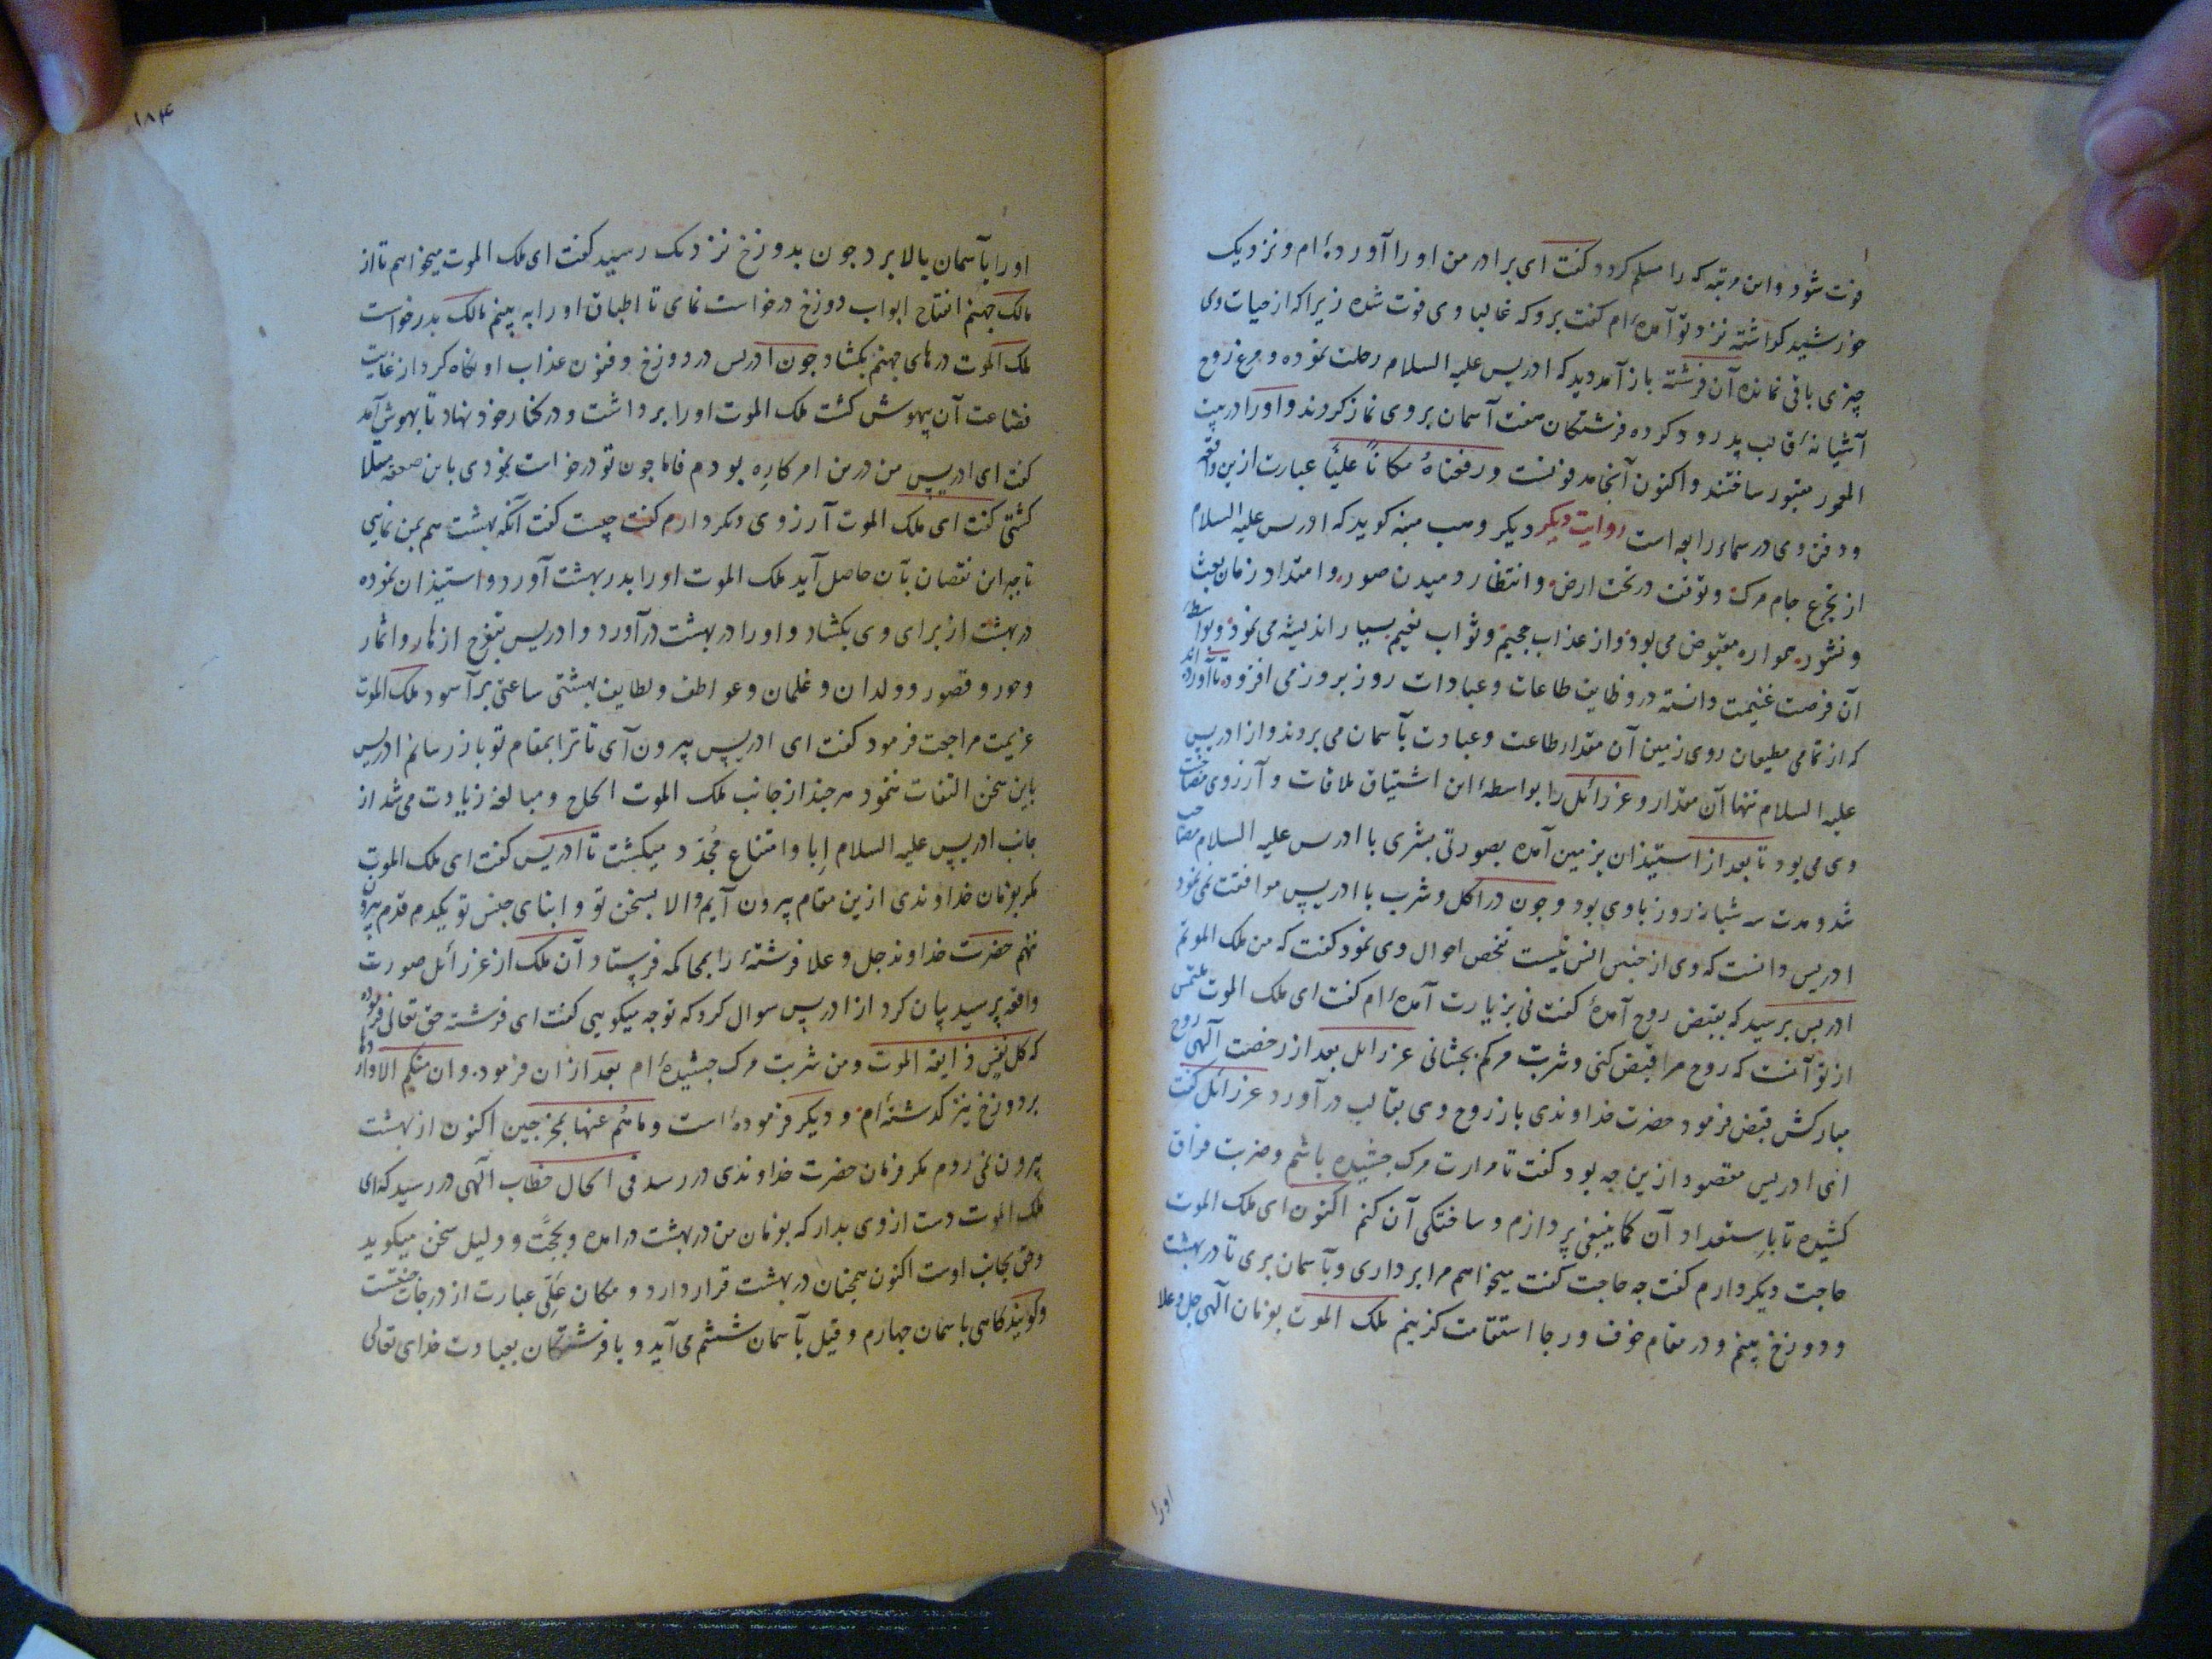 فوت شود و این مرتبه که را مسلم کردد کفت ای برادر من او را آورده‌ٔ ام و نزدیک
خورشید کذاشته نزد تو آمده‌ٔ ام کفت برو که غالبا وی فوت شده زیرا که از حیات وی
چیزی باقی نمانده آن فرشته باز آمد دید که ادریس علیه السلام رحلت نموده و مرغ روح
آشیانهٔ قالب پدرود کرده فرشتکان هفت آسمان بر وی نماز کردند و او را در بیت
المعمور مقبور ساختند و اکنون آنجا مدفونست و رفعناهُ مکاناً علیّاً عبارت ازین واقعه
و دفن وی در سماء رابعه است روایت دیکر دیکر وهب منبه کوید که ادریس علیه السلام
از تجرع جام مرک و توقف در تحت ارض و انتظار دمیدن صور و امتداد زمان بعث
و نشور همواره مقبوض می بود و از عذاب جحیم و ثواب نعیم بسیار اندیشه می نمود و بواسطهٔ
آن فرصت غنیمت دانسته در وظایف طاعات و عبادات روز بروز می افزود تا آورده اند
که از تمامی مطیعان روی زمین آن مقدار طاعت و عبادت بآسمان می بردند و از ادریس
علیه السلام تنها آن مقدار و عزرائل را بواسطهٔ این اشتیاق ملاقات و آرزوی
وی می بود تا بعد از استیذان بزمین آمده بصورتی بشری با ادریس علیه السلام مصاحب
شد و مدت سه شبانه روز با وی بود و چون در اکل و شرب با ادریس موافقت نمی نمود
ادریس دانست که وی از جنس انس نیست تفحص احوال وی نمود کفت که من ملک الموتم
ادریس پرسید که بقبض روح آمدهٔ کفت نی بزیارت آمده‌ٔ ام کفت ای ملک الموت ملتمس
از تو آنست که روح مرا قبض کنی و شربت مرکم بچشانی عزرایل بعد از رخصت الهی روح
مبارکش قبض فرمود حضرت خداوندی باز روح وی بقالب در آورد عزرائل کفت
ای ادریس مقصود ازین چه بود کفت تا مرارت مرک چشیده باشم و ضربت فراق
کشیده تا باستعداد آن کما ینبغی پردازم و ساختکی آن کنم اکنون ای ملک الموت
حاجت دیکر دارم کفت چه حاجت کفت میخواهم مرا برداری و بآسمان بری تا در بهشت
و دوزخ بینم و در مقام خوف و رجا استقامت کزینم ملک الموت بفرمان الهی جل و علا
اورا
۱۸۴
او را بآسمان بالا برد جون بدوزخ نزدیک رسید کفت ای ملک الموت میخواهم تا از
مالک جهنم افتتاح ابواب دوزخ درخواست نمای تا اطباق او را به بینم مالک بدرخواست
ملک الموت درهای جهنم بکشاد جون ادریس در دوزخ و فنون عذاب او نکاه کرد از غایت
فضاعت آن بیهوش کشت ملک الموت او را برداشت و در کنار خود نهاد تا بهوش آمد
کفت ای ادریس من درین امر کاره بودم فاما جون تو درخواست نمودی باین صعقه مبتلا
کشتی کفت ای ملک الموت آرزوی دیکر دارم کفت چیست کفت آنکه بهشت هم بمن نمایی
تا جبر این نقصان بآن حاصل آید ملک الموت او را بدر بهشت آورد و استیذان نموده
در بهشت از برای وی بکشاد و او را در بهشت در آورد و ادریس بتفرج انهار و اثمار
و حور و قصور و ولدان و غلمان و عواطف و لطایف بهشتی ساعتی برآسود ملک الموت
عزیمت مراجعت فرمود کفت ای ادریس بیرون آی تا ترا بمقام تو باز رسانم ادریس
باین سخن التفات ننمود هرچند از جانب ملک الموت الحاح و مبالغه زیادت می شد از
جانب ادریس علیه السلام اِبا و امتناع مُجدّد میکشت تا ادریس کفت ای ملک الموت
مکر بفرمان خداوندی ازین مقام بیرون آیم و الا بسخن تو و ابنای جنس تو یکدم قدم بیرون
ننهم حضرت خداوند جل و علا فرشتهٔ را بمحاکمه فرستاد آن ملک از عزرائل صورت
واقعه پرسید بیان کرد از ادریس سوال کرد که تو چه میکویی کفت ای فرشته حق تعالی فرموده
که کل نفس ذایقة الموت و من شربت مرک چشیده‌ٔ ام بعد ازان فرمود وان منکم الا واردها
بر دوزخ نیز کذشته‌ٔ ام و دیکر فرموده‌ٔ است و ماهُم عنها بمخرجین اکنون از بهشت
بیرون نمی روم مکر فرمان حضرت خداوندی در رسد فی الحال خطاب الهی در رسید که ای
ملک الموت دست از وی بدار که بفرمان من در بهشت درامده و بحجّت و دلیل سخن میکوید
و حق بجانب اوست اکنون همچنان در بهشت قرار دارد و مکان عَلِیّ عبارت از درجات جنتست
و کویند کاهی باسمان چهارم و قیل بآسمان ششم می آید و با فرشتکان بعبادت خدای تعالی